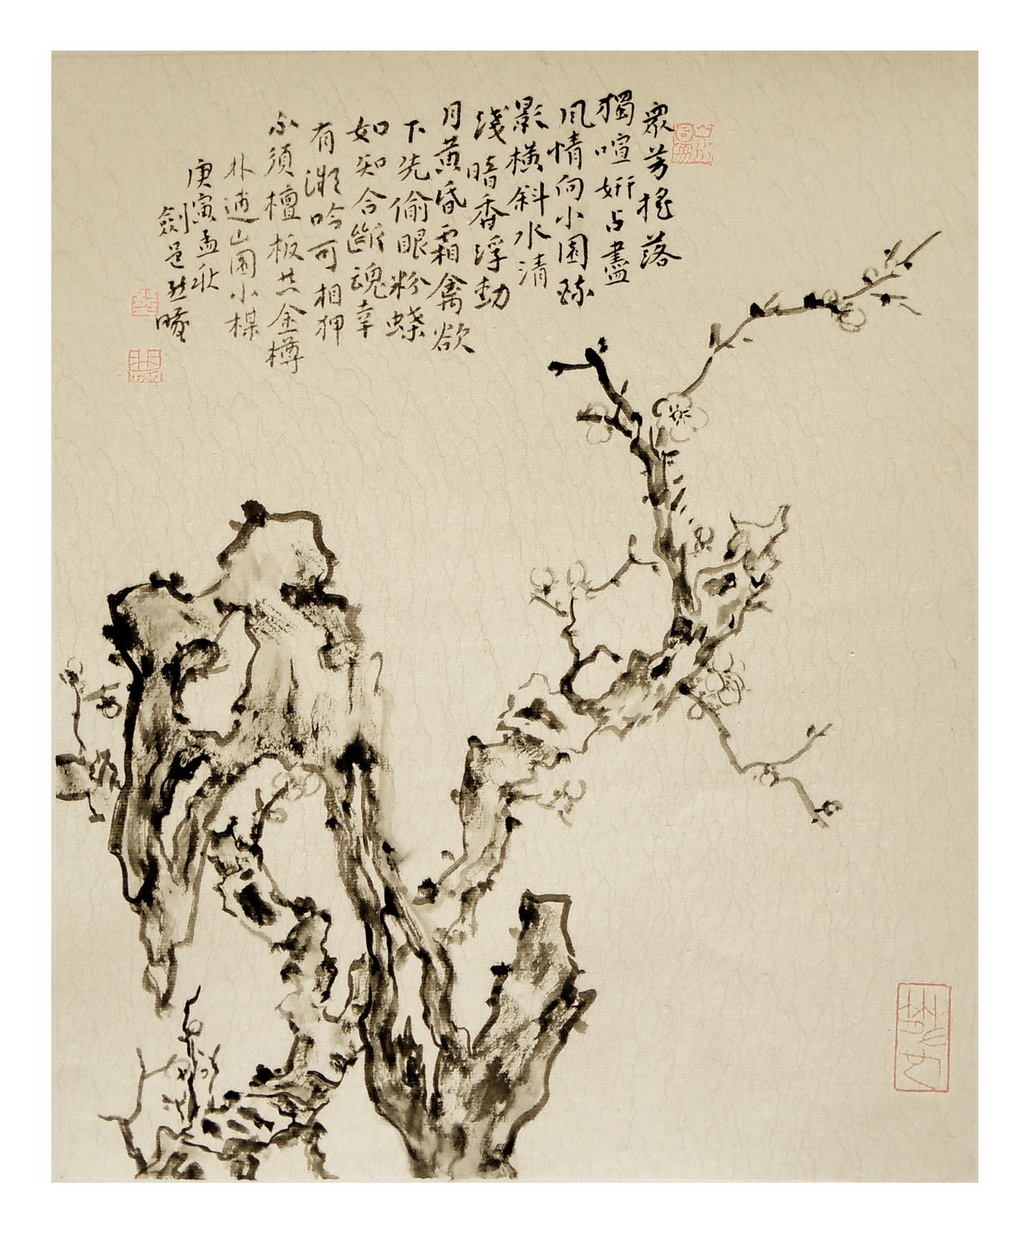 衆芳搖落
獨喧妍占盡
風情向小園疏
影橫斜水清
淺暗香浮動
月黃昏霜禽欲
下先偷眼粉蝶
如知合斷魂幸
有微吟可相狎
不須檀板共金樽
林逋山園小梅
庚寅孟秋
劍邑